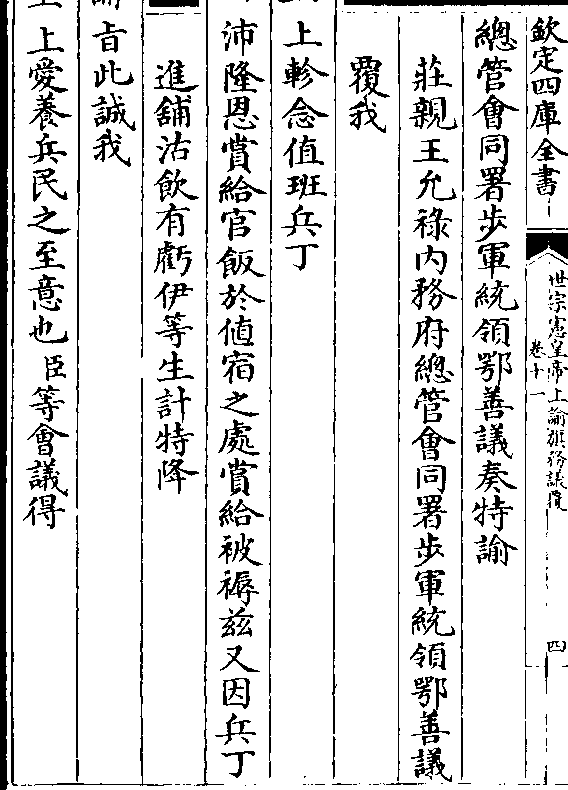 欽定四庫全書
世宗憲皇帝上諭旗務議覆
卷十一
四
總管會同署步軍統領鄂善議奏特諭
莊親王允祿內務府總管會同署步軍統領鄂善議
覆我
上軫念值班兵丁
沛隆恩賞給官飯於值宿之處賞給被褥茲又因兵丁
進舖沽飲有虧伊等生計特降
諭旨此誠我
上愛養兵民之至意也臣等會議得